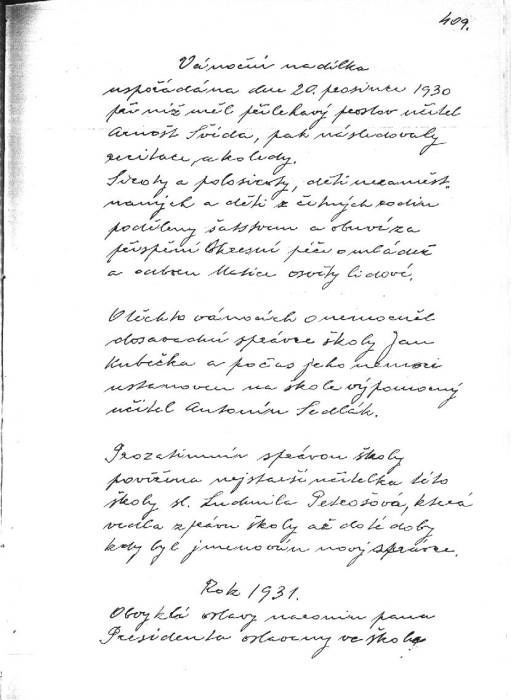 409.
Vánoční nadílka
uspořádána dne 20. prosince 1930
při níž měl přiléhavý proslov učitel
Arnošt Švída, pak následovaly
recitace a koledy.
Siroty a polosiroty, děti nezaměst-
naných a děti z četných rodin
poděleny šatstvem a obuví za
přispění Okresní péče o mládež
a odboru Matice osvěty lidové.
O těchto vánocích onemocněl
dosavadní správce školy Jan
Kubička a po čas jeho nemoci
ustanoven na škole výpomocný
učitel Antonín Sedlák.
Prozatimním správou školy
pověřena nejstarší učitelka této
školy sl. Ludmila Petrošová, která
vedla správu školy až do té doby
kdy byl jmenován nový správce.
Rok 1931.
Obvyklé oslavy narozenin pana
Presidenta oslaveny ve škole